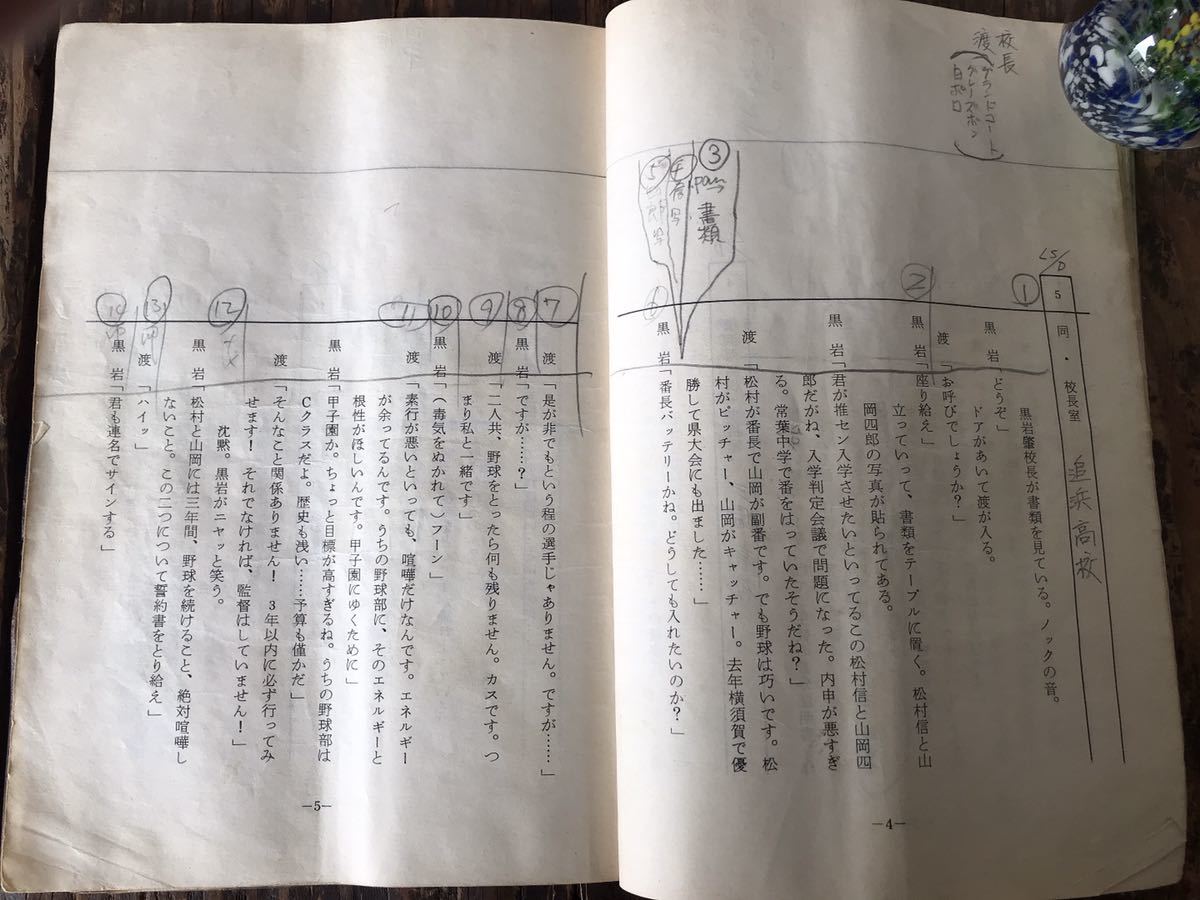 校長
渡
グランドコート
グレーズボン
白ポロ
LS/D
5 同・校長室 追浜高校
①
黒岩肇校長が書類を見ている。ノックの音。
黒岩「どうぞ」
ドアがあいて渡が入る。
渡「お呼びでしょうか？」
②
黒岩「座り給え」
立っていって、書類をテーブルに置く。松村信と山
岡四郎の写真が貼られてある。
黒岩「君が推セン入学させたいといってるこの松村信と山岡四
郎だがね、入学判定会議で問題になった。内申が悪すぎ
る。常葉中学で番をはっていたそうだね？」
③
pan
書類
④
⑤
渡「松村が番長で山岡が副番です。でも野球は巧いです。松
村がピッチャー、山岡がキャッチャー。去年横須賀で優
勝して県大会にも出ました……」
⑥
黒岩「番長バッテリーかね。どうしても入れたいのか？」
—4—
⑦
渡「是が非でもという程の選手じゃありません。ですが……」
⑧
黒岩「ですが……？」
⑨
渡「二人共、野球をとったら何も残りません。カスです。つ
まり私と一緒です」
⑩
黒岩「（毒気をぬかれて）フーン」
⑪
渡「素行が悪いといっても、喧嘩だけなんです。エネルギー
が余ってるんです。うちの野球部に、そのエネルギーと
根性がほしいんです。甲子園にゆくために」
黒岩「甲子園か。ちょっと目標が高すぎるね。うちの野球部は
Cクラスだよ。歴史も浅い……予算も僅かだ」
渡「そんなこと関係ありません！　3年以内に必ず行ってみ
せます！　それでなければ、監督はしていません！」
⑫
沈黙。黒岩がニヤッと笑う。
黒岩「松村と山岡には三年間、野球を続けること、絶対喧嘩し
ないこと。この二つについて誓約書をとり給え」
⑬
渡「ハイッ」
⑭
黒岩「君も連名でサインする」
—5—